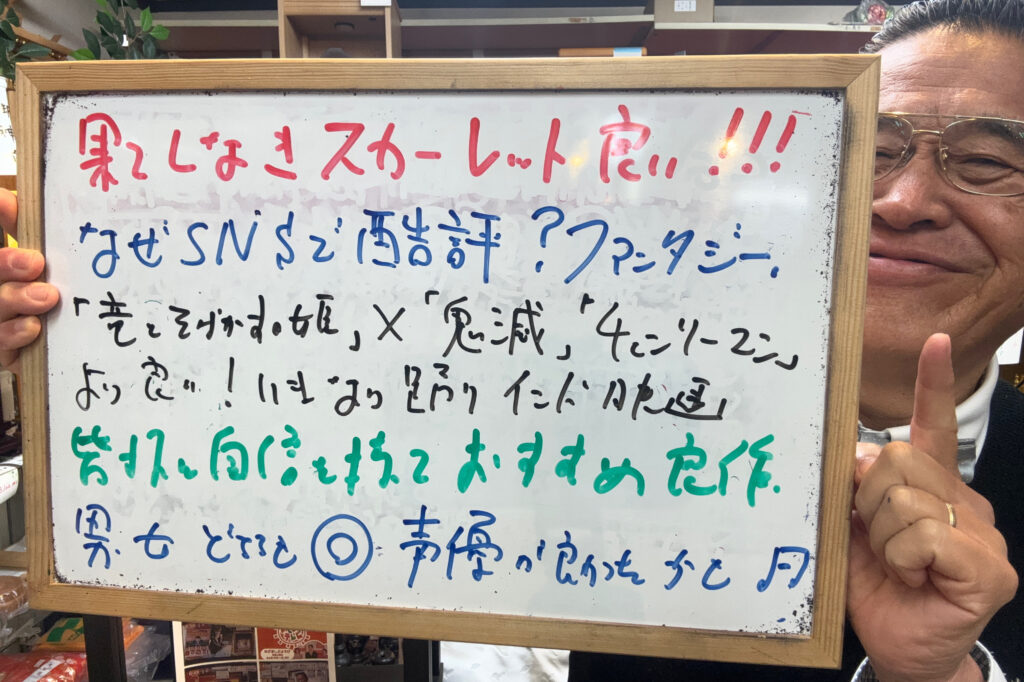 果てしなきスカーレット良い!!!
なぜSNSで酷評?ファンタジー.
「竜とそばかすの姫」×「鬼滅」「チェンソーマン」
より良い!いきなり踊り インド映画
皆揆に自信を持っておすすめ良作.
男.女 どちらも◎声優が良かったかと 円